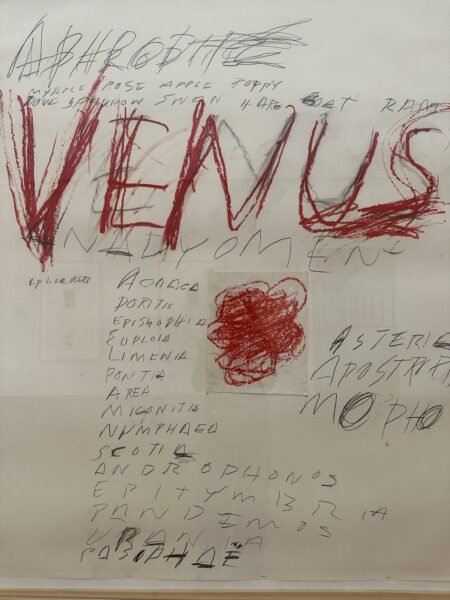 APHRODITE
MYRTLE ROSE APPLE POPPY
DOVE SPARROW SWAN HARE RAM
VENUS
ANADYOMENE
aphrodite
ACRAEA
DORITIS
EUPLOIA
LIMENIA
PONTIA
AREA
MIGONITIS
NUMPHAEA
SCOTIA
ANDROPHONOS
EPITYMBRIA
PANDEMOS
URANIA
PASIPHAE
ASTERI
APOSTROP
MOPHO